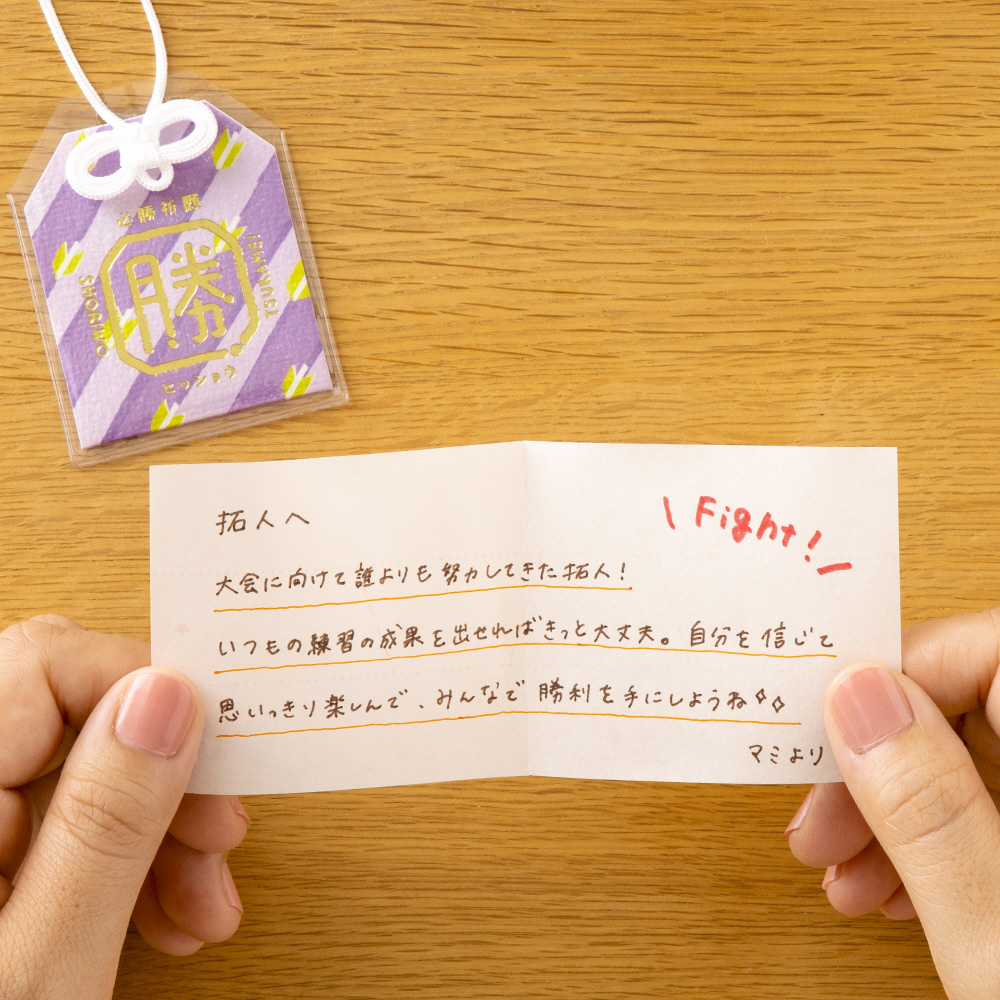 必勝祈願
勝
SHORI WO
TSUKAME!
ヒッショウ
\ Fight! /
拓人へ
大会に向けて誰よりも努力してきた拓人!
いつもの練習の成果を出せればきっと大丈夫。自分を信じて
思いっきり楽しんで、みんなで勝利を手にしようね✧✧
マミより